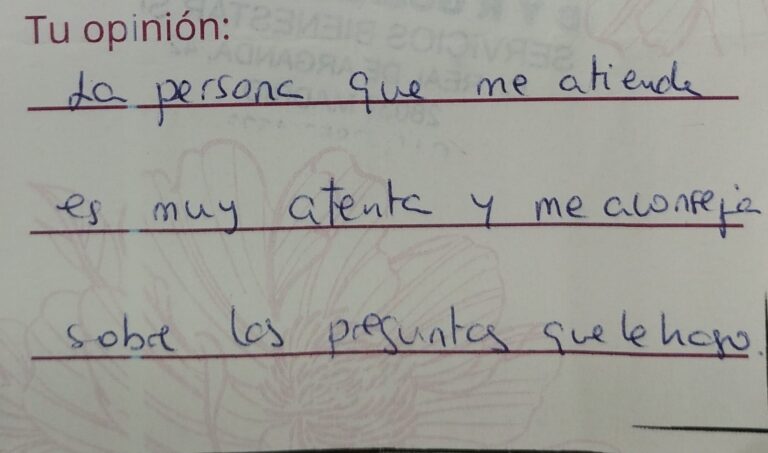 Tu opinión:
La persona que me atiende
es muy atenta y me aconseja
sobre las preguntas que le hago.